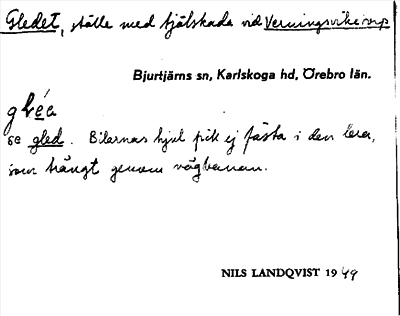 Gledet, ställe med tjälskada vid Verningsvike vsp
Bjurtjärns sn, Karlskoga hd, Örebro län.
gléa
se gled. Bilarnas hjul fick ej fästa i den lera,
som trängt genom vägbanan.
NILS LANDQVIST 1949